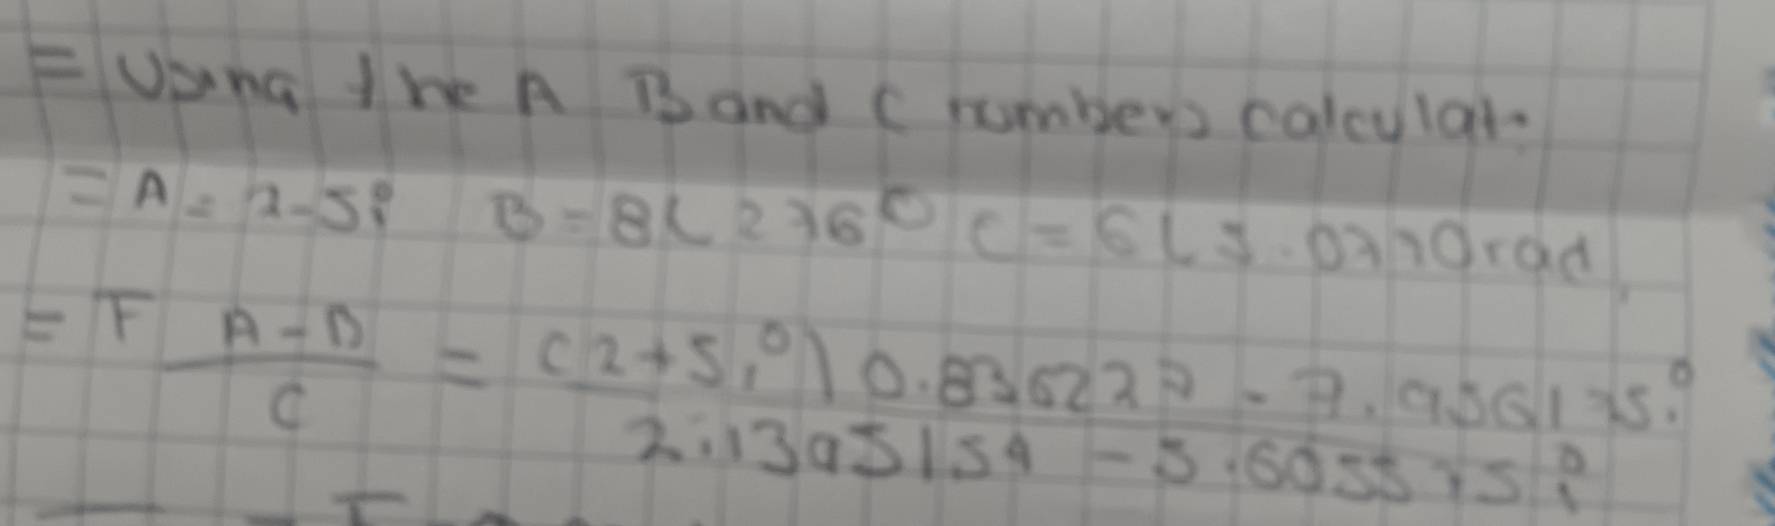 = Using the A B and C numbers calculat.
= A = 2-5i B = 8∠276° C = 6∠5.0770rad
= F A-B / C = (2+5i) 0.836227 - 7.956175i
2.1395154 - 5.605575i